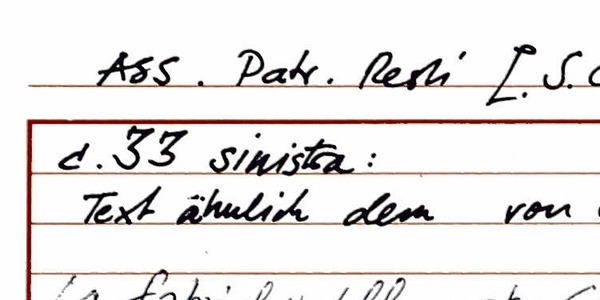 Ass. Patr. Resti [. S. C
c. 33 sinistra:
Text ähnlich dem von